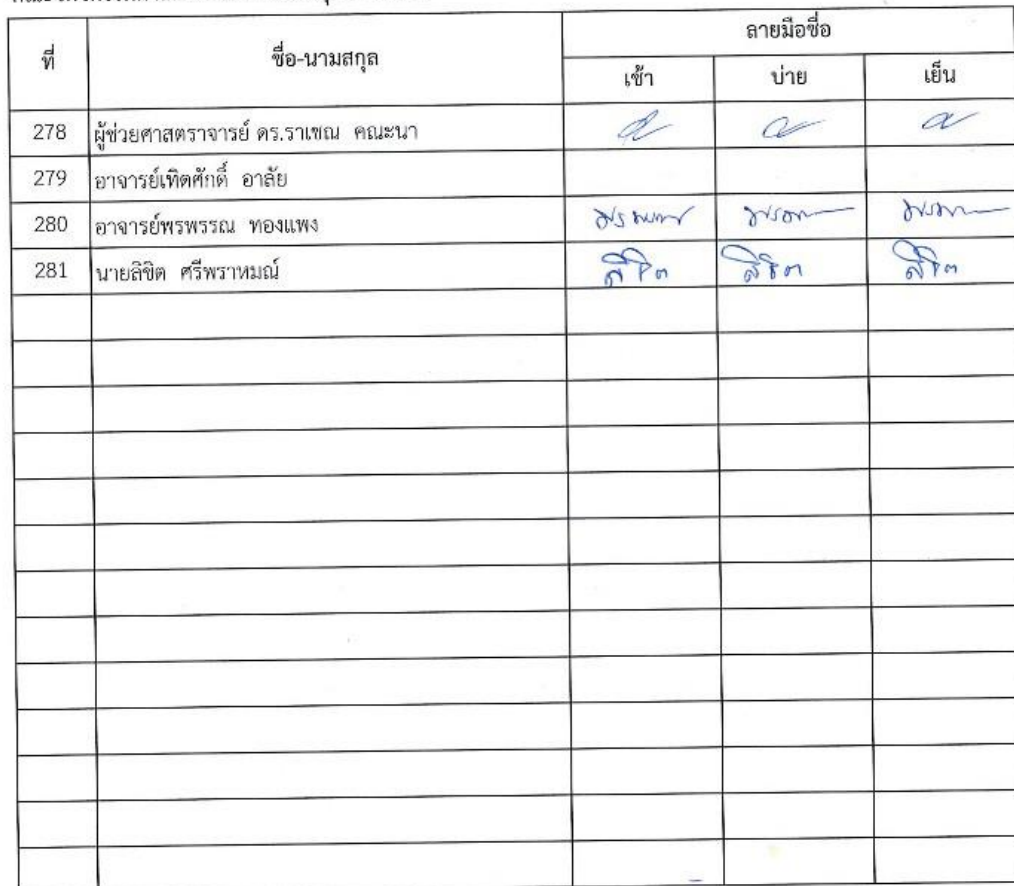 ลายมือชื่อ
ที่ ชื่อ-นามสกุล
เช้า บ่าย เย็น
278 ผู้ช่วยศาสตราจารย์ ดร.ราเชณ คณะนา
279 อาจารย์เทิดศักดิ์ อาลัย
280 อาจารย์พรพรรณ ทองแพง
281 นายลิขิต ศรีพราหมณ์ ลิขิต ลิขิต ลิขิต